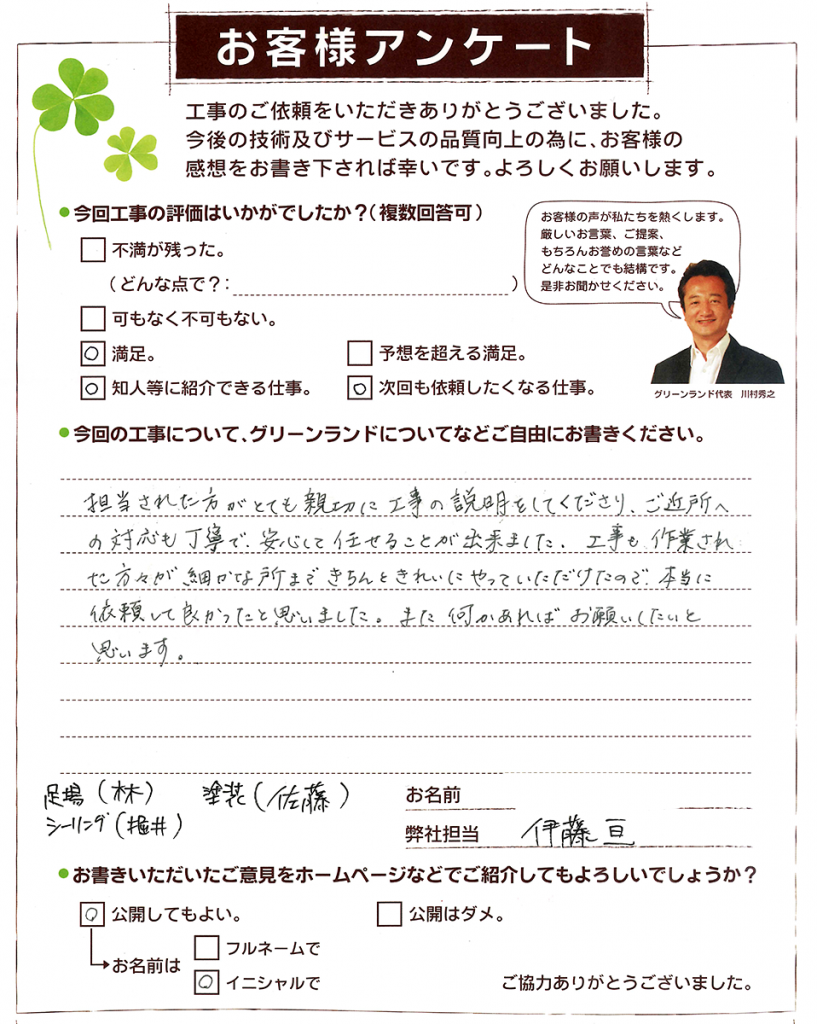 お客様アンケート
工事のご依頼をいただきありがとうございました。
今後の技術及びサービスの品質向上の為に、お客様の
感想をお書き下されば幸いです。よろしくお願いします。
今回工事の評価はいかがでしたか?(複数回答可)
不満が残った。
(どんな点で?: )
可もなく不可もない。
満足。
予想を超える満足。
知人等に紹介できる仕事。
次回も依頼したくなる仕事。
お客様の声が私たちを熱くします。
厳しいお言葉、ご提案、
もちろんお誉めの言葉など
どんなことでも結構です。
是非お聞かせください。
グリーンランド代表 川村秀之
今回の工事について、グリーンランドについてなどご自由にお書きください。
担当された方がとても親切に工事の説明をしてくださり、ご近所へ
の対応も丁寧で、安心して任せることが出来ました。工事も、作業され
た方々が細かな所まできちんときれいにやっていただけたので、本当に
依頼して良かったと思いました。また何かあればお願いしたいと
思います。
足場(林) 塗装(佐藤)
シーリング(堀井)
お名前
弊社担当 伊藤 亘
お書きいただいたご意見をホームページなどでご紹介してもよろしいでしょうか?
公開してもよい。
公開はダメ。
お名前は
フルネームで
イニシャルで
ご協力ありがとうございました。